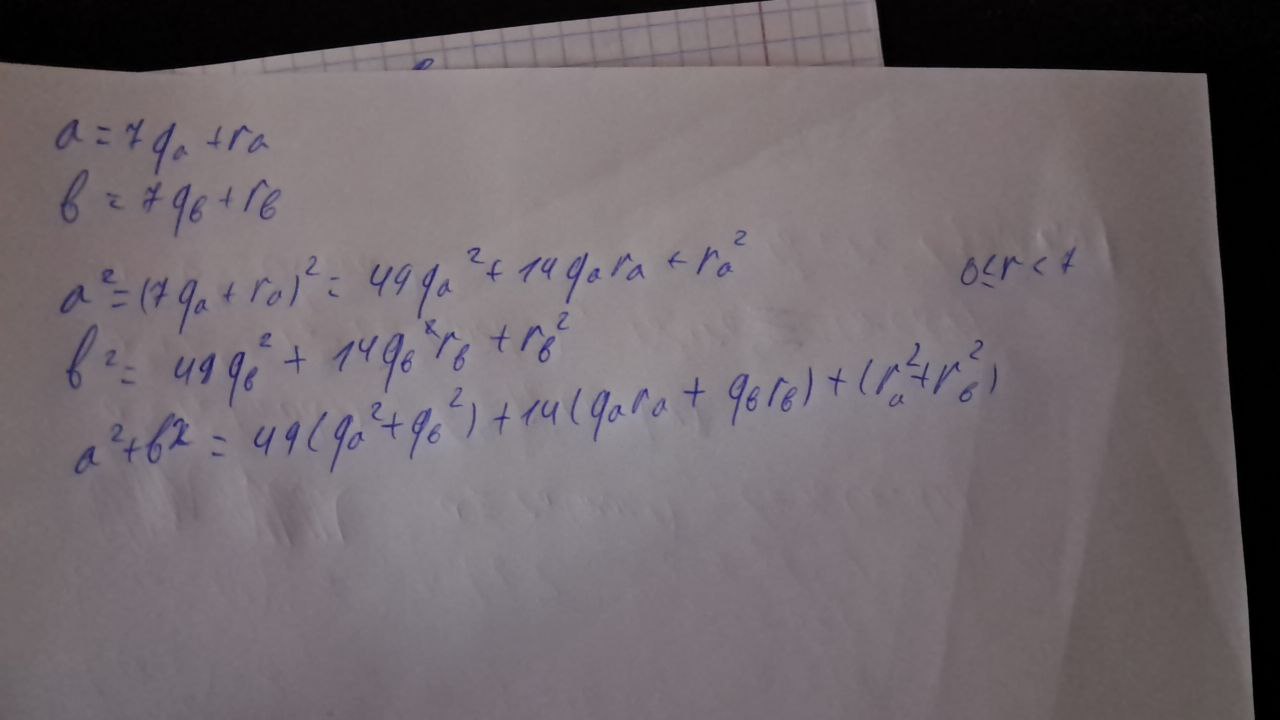 a = 7qₐ + rₐ
в = 7qв + rв
a² = (7qₐ + rₐ)² = 49qₐ² + 14qₐrₐ + rₐ² 0 ≤ r < 7
в² = 49qв² + 14qв rв + rв²
a² + в² = 49(qₐ² + qв²) + 14(qₐrₐ + qвrв) + (rₐ² + rв²)